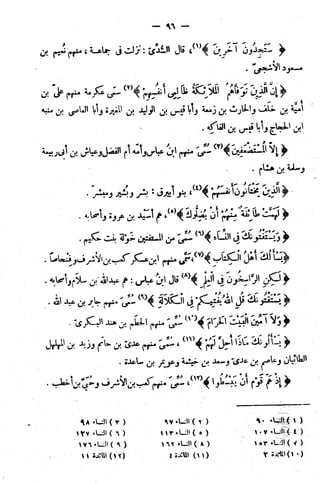 — ٩٦ —
﴿ سَتَجِدُونَ آخَرِينَ ﴾(١)، قال السُّدّيّ: نزلت فى جماعة، منهم نعيم بن
مسعود الأشجعىّ.
﴿ إِنَّ الَّذِينَ تَوَفَّاهُمُ الْمَلَائِكَةُ ظَالِمِى أَنْفُسِهِمْ ﴾(٢) سمّى عكرمة منهم علىّ بن
أميّة بن خلف والحارث بن زمعة وأبا قيس بن الوليد بن المغيرة وأبا العاصى بن منبه
ابن الحجاج وأبا قيس بن الفاكه.
﴿ إِلَّا الْمُسْتَضْعَفِينَ ﴾(٣) سُمِّىَ منهم ابنُ عباس وأمه أم الفضل وعياش بن أبى ربيعة
وسلمة بن هشام.
﴿ الَّذِينَ يَخْتَانُونَ أَنْفُسَهُمْ ﴾(٤)، بنو أبيرق: بشر وبُشير ومبشر.
﴿ لَهَمَّتْ طَائِفَةٌ مِنْهُمْ أَنْ يُضِلُّوكَ ﴾(٥)، هم أسيد بن عروة وأصحابه.
﴿ وَيَسْتَفْتُونَكَ فِى النِّسَاءِ ﴾(٦) سُمِّىَ من المستفتين خولة بنت حكيم.
﴿ يَسْأَلُكَ أَهْلُ الْكِتَابِ ﴾(٧)، سمّى منهم ابن عسكر كعب بن الأشرف وفنحاصا.
﴿ لَكِنِ الرَّاسِخُونَ فِى الْعِلْمِ ﴾(٨) قال ابن عباس: هم عبدالله بن سلام وأصحابه.
﴿ يَسْتَفْتُونَكَ قُلِ اللهُ يُفْتِيكُمْ فِى الْكَلَالَةِ ﴾(٩) سُمِّىَ منهم جابر بن عبد الله.
﴿ وَلَا آمِّينَ الْبَيْتَ الْحَرَامَ ﴾(١٠) سُمِّىَ منهم الحطم بن هند البكرىّ.
﴿ يَسْأَلُونَكَ مَاذَا أُحِلَّ لَهُمْ ﴾(١١)، سمّى منهم عدىّ بن حاتم وزيد بن المهلهل
الطائيان وعاصم بن عدى وسعد بن خيثمة وعويمر بن ساعدة.
﴿ إِذْ هَمَّ قَوْمٌ أَنْ يَبْسُطُوا ﴾(١٢)، سُمِّىَ منهم كعب بن الأشرف وحُيىّ بن أخطب.
(١) النساء ٩٠ (٢) النساء ٩٧ (٣) النساء ٩٨
(٤) النساء ١٠٧ (٥) النساء ١١٣ (٦) النساء ١٢٧
(٧) النساء ١٥٣ (٨) النساء ١٦٢ (٩) النساء ١٧٦
(١٠) المائدة ٢ (١١) المائدة ٤ (١٢) المائدة ١١